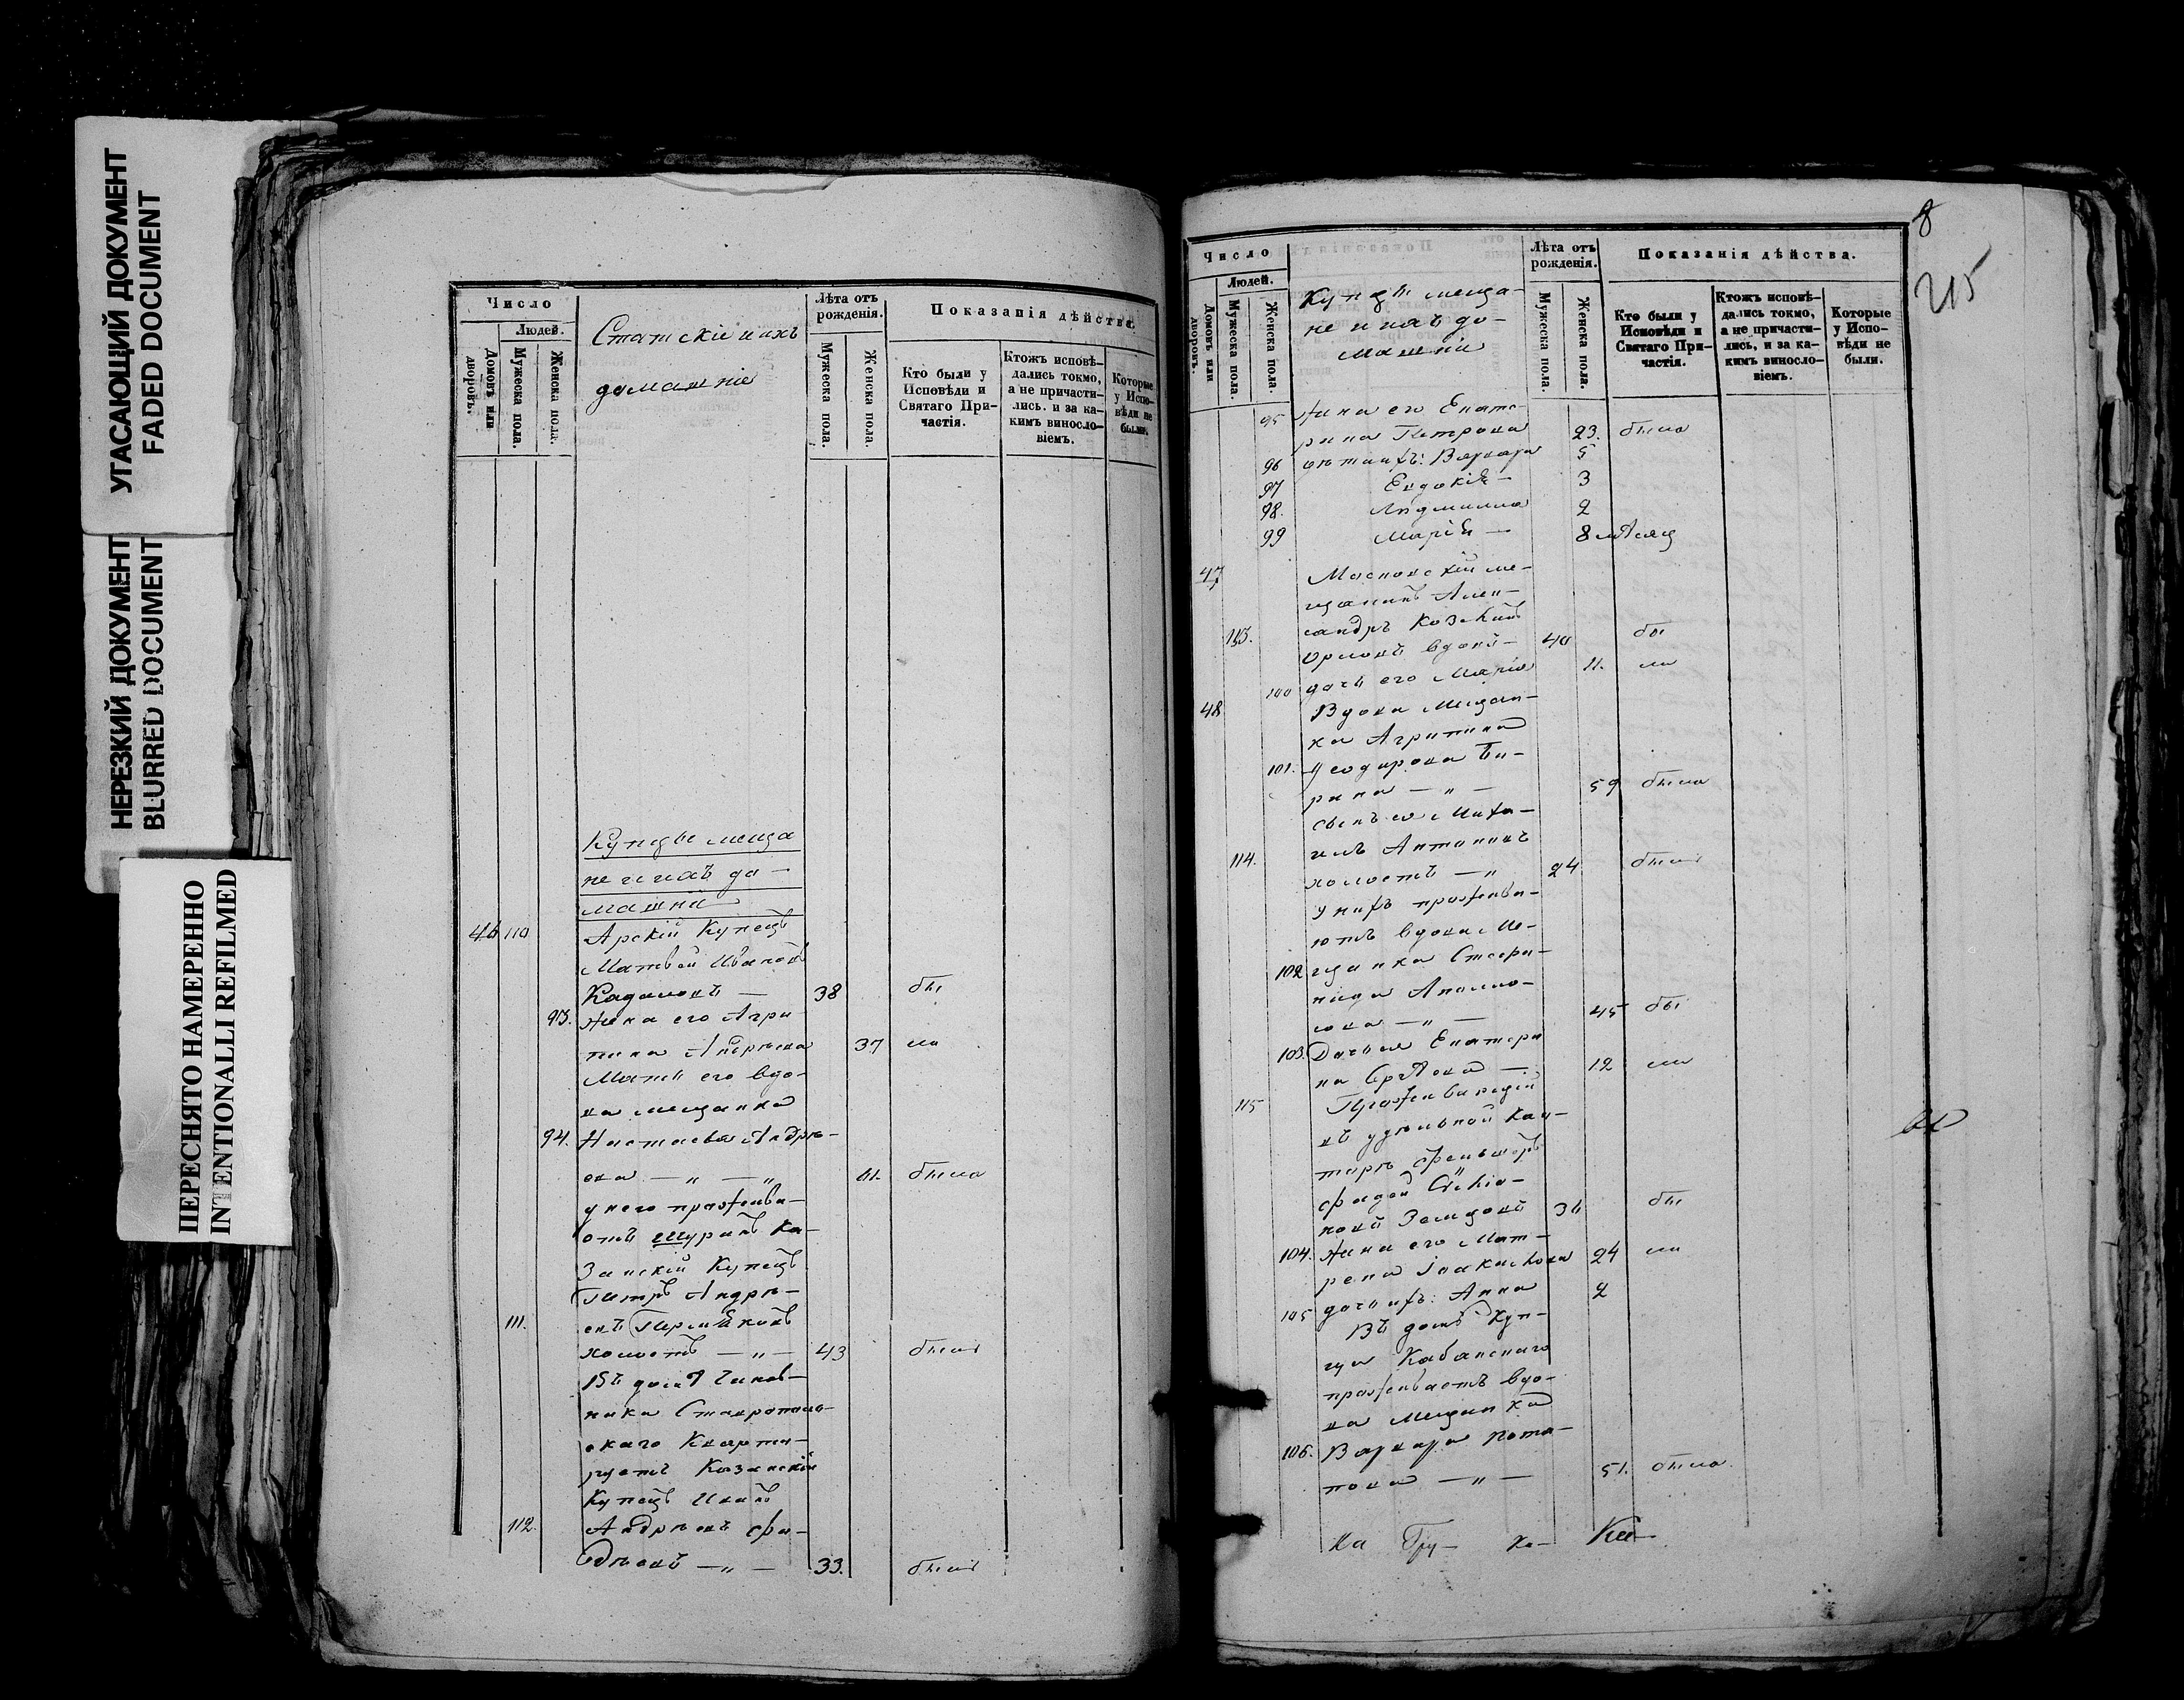 УГАСАЮЩИЙ ДОКУМЕНТ
FADED DOCUMENT
НЕРЕЗКИЙ ДОКУМЕНТ
BLURRED DOCUMENT
ПЕРЕСНЯТО НАМЕРЕННО
INTENTIONALLI REFILMED
Число
Людей.
Домовъ или дворовъ.
Мужеска пола.
Женска пола.
Статскіе и ихъ
домашніе
Лѣта отъ рожденія.
Мужеска пола.
Женска пола.
Показанія дѣйства.
Кто были у Исповѣди и Святаго Причастія.
Ктожъ исповѣдались токмо, а не причастились. и за какимъ винословіемъ.
Которые у Исповѣди не были.
Купцы меща
не и ихъ до-
машніе
46 110 Арскій Купецъ
Матвей Ивановъ
38 бы
93. Жена его Агри
пина Андреева 37 ли
Мать его вдо-
ва мещанка
94. Настасья Андре-
ева — „ — „ 61. была
у него прожива-
етъ шуринъ Ка-
занскій Купецъ
Петръ Андре-
111. евъ
холостъ — „ — 43 былъ
Въ домѣ Чинов-
ника Ставрополь-
скаго Кварти-
руетъ Казанскій
Купецъ Иванъ
112. Андреевъ Фа-
деевъ — „ — 33. былъ
8
215
Число
Людей.
Домовъ или дворовъ.
Мужеска пола.
Женска пола.
Купцы меща-
не и ихъ до-
машніе
Лѣта отъ рожденія.
Мужеска пола.
Женска пола.
Показанія дѣйства.
Кто были у Исповѣди и Святаго Причастія.
Ктожъ исповѣдались токмо, а не причастились, и за какимъ винословіемъ.
Которые у Исповѣди не были.
95 Жена его Екате-
рина Петрова 23. была
96 дѣти ихъ: Варвара 5
97 Евдокія — 3
98. Людмила 2
99 Марія — 8 мѣсяц
47 Московскій ме-
щанинъ Алек-
113. сандръ Козьминъ
Орловъ вдовъ — 40 бы
100 дочь его Марія 11. ли
48 Вдова Мещан-
ка Агрипина
101. Ѳеодорова
— „ — 59 была
сынъ ея Миха-
114. илъ Антоновъ
холостъ — „ 24 былъ
У нихъ прожива-
ютъ вдова Ме-
102 щанка Стефа-
нида
— „ — 45 бы
103. Дочь ея Екатери
на — 12 ли
115 Проживающій
въ удѣльной Кон-
торѣ фельшеръ
Фадей
36 бы
104. Жена его Мат-
рена 24 ли
105 дочь ихъ: Анна 2
Въ домѣ Куп-
ца Кабанскаго
проживаетъ вдо-
ва Мещанка
106. Варвара Пота-
пова — „ — 51. была